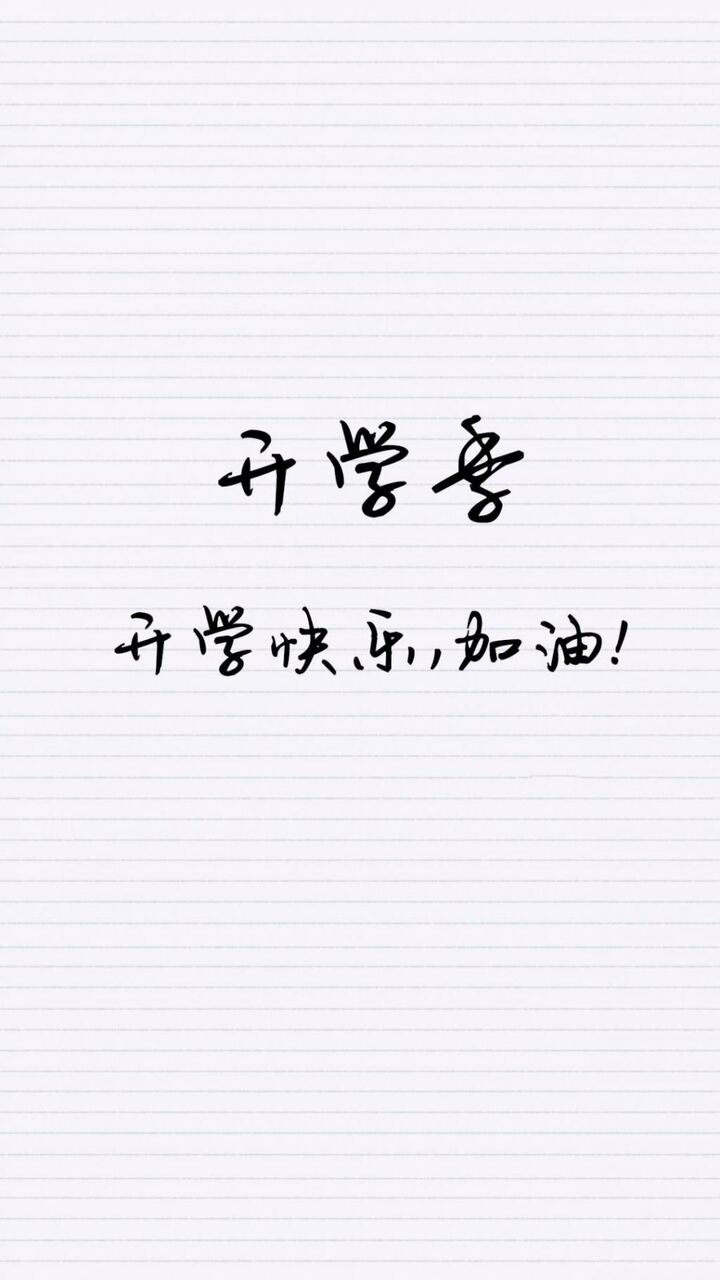 开学季
开学快乐，加油！